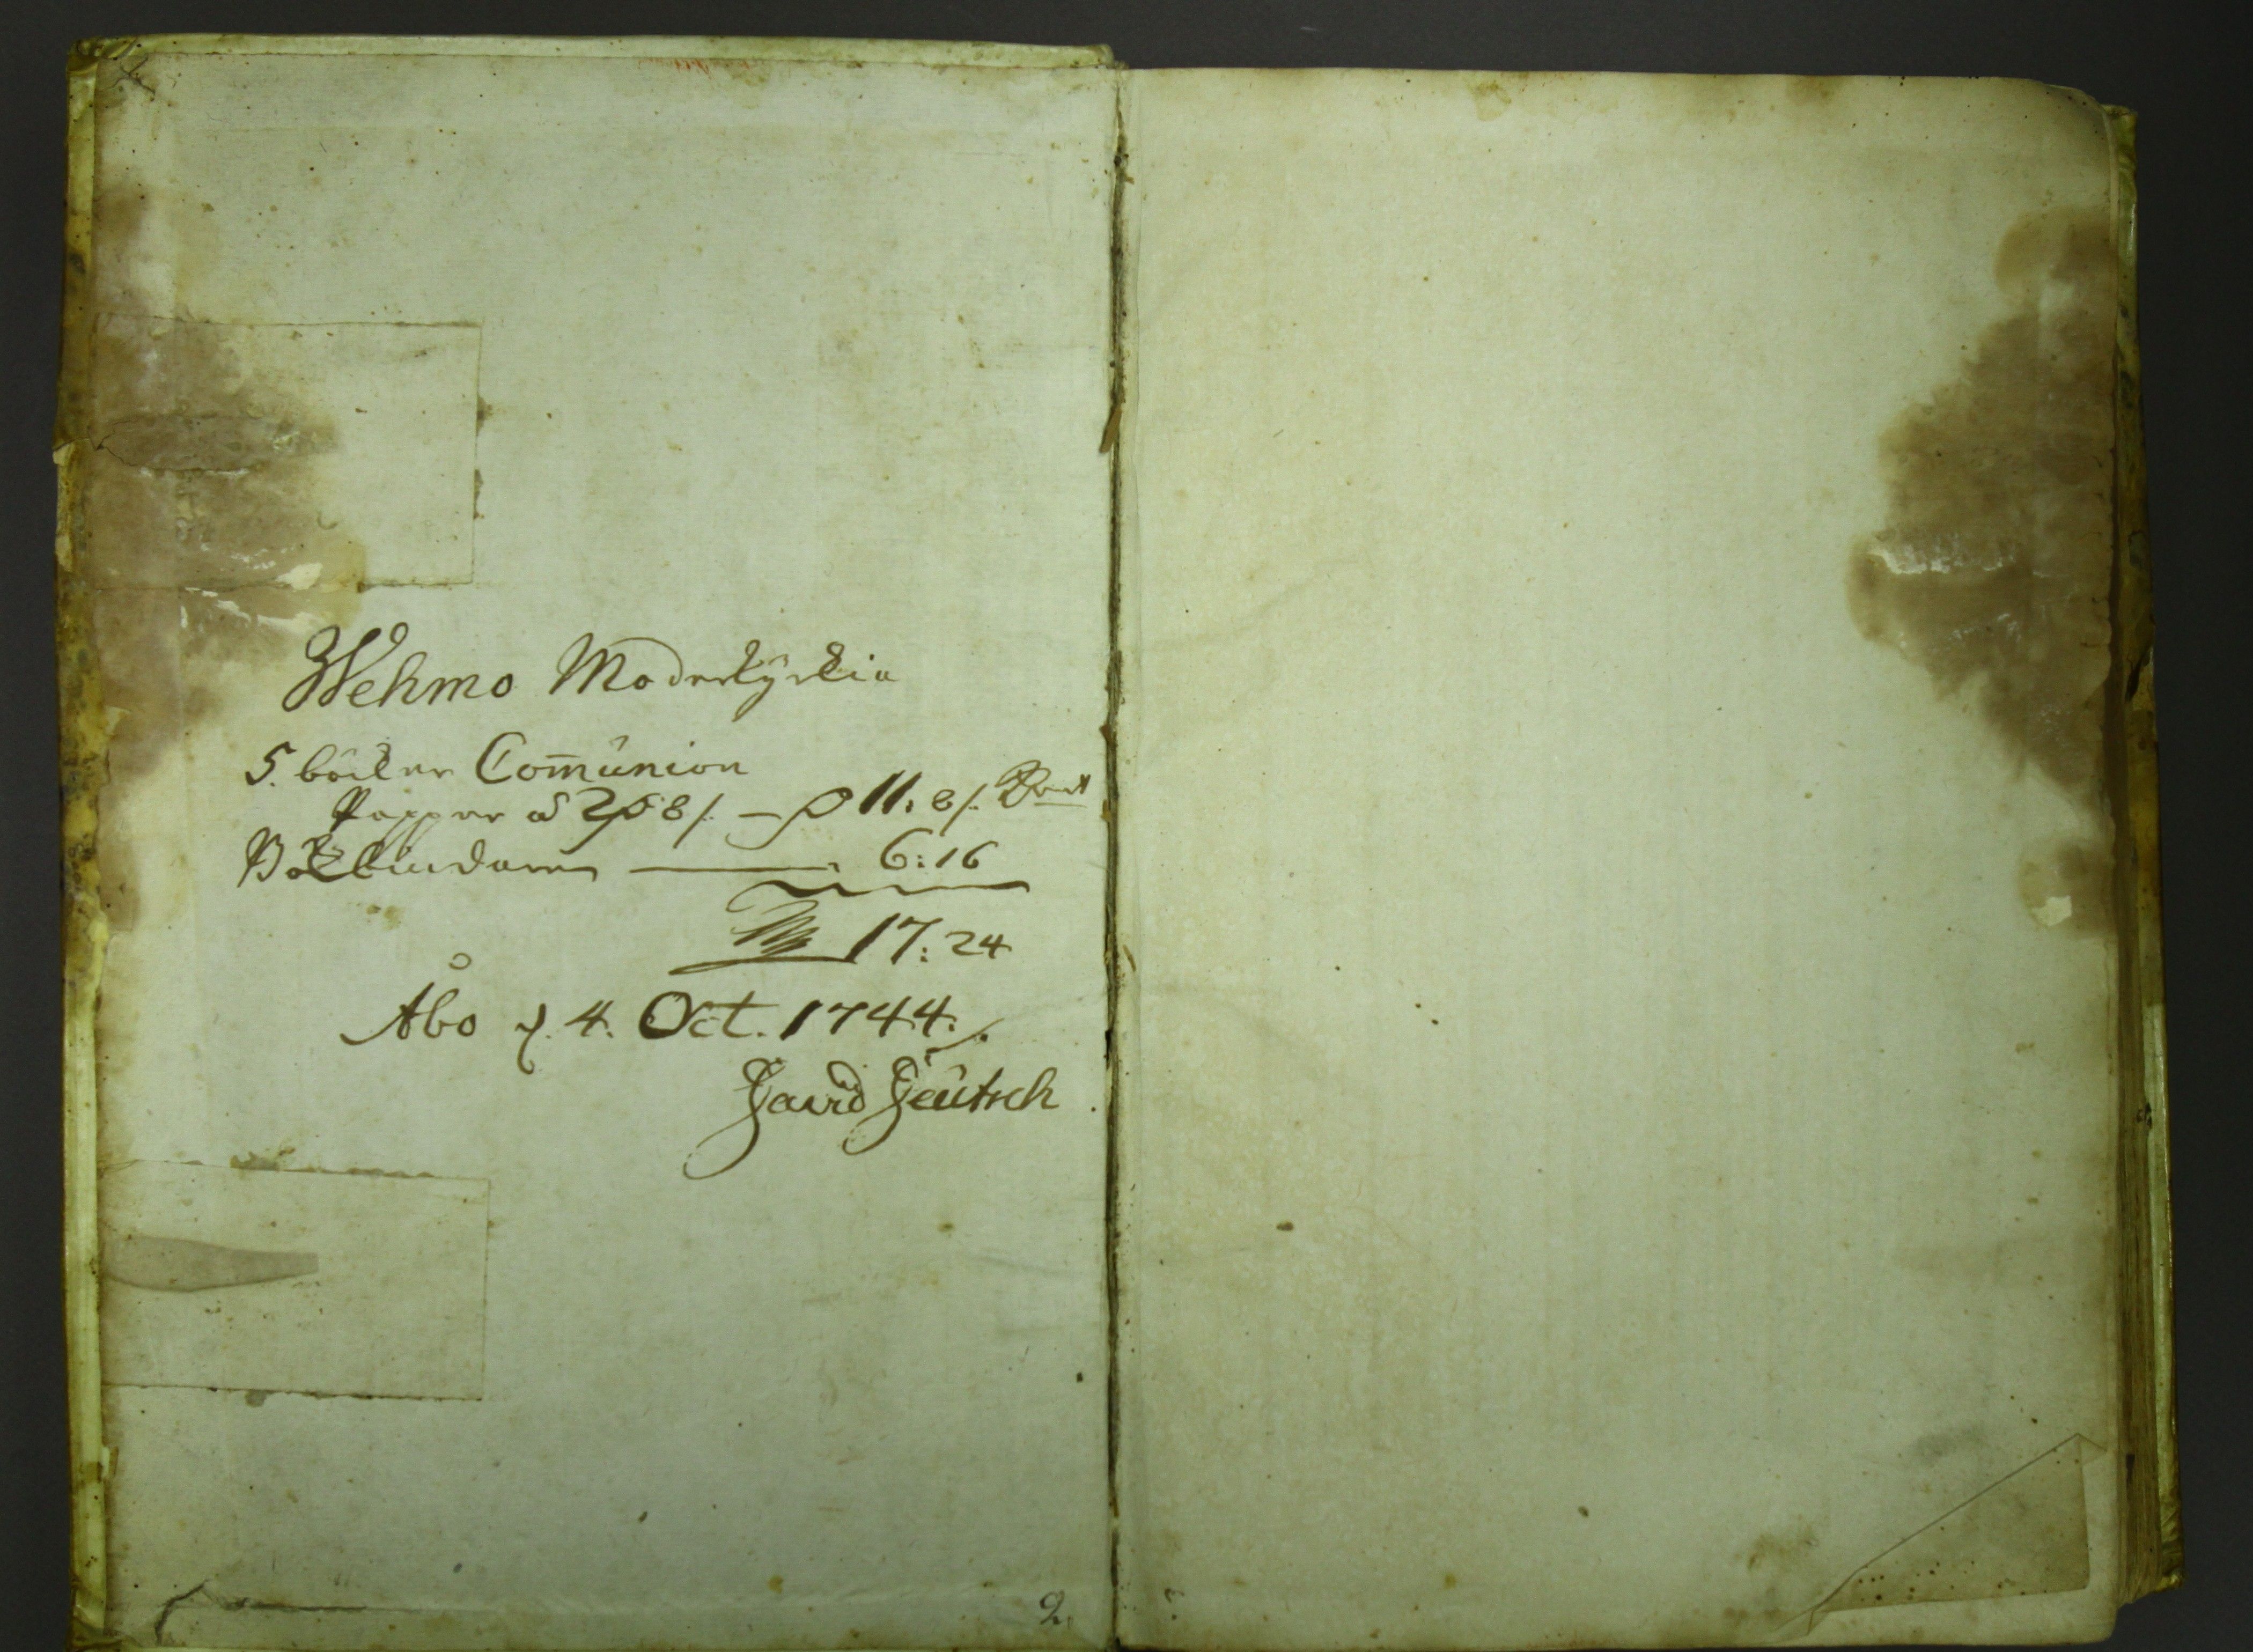 Wehmo Moderkyrkia
5. böcker Com̄union
Papper à 2 8/. — 11: 8/.
Bokbindaren — 6: 16
17: 24
Åbo d. 4. Oct. 1744.
David Deutsch
2